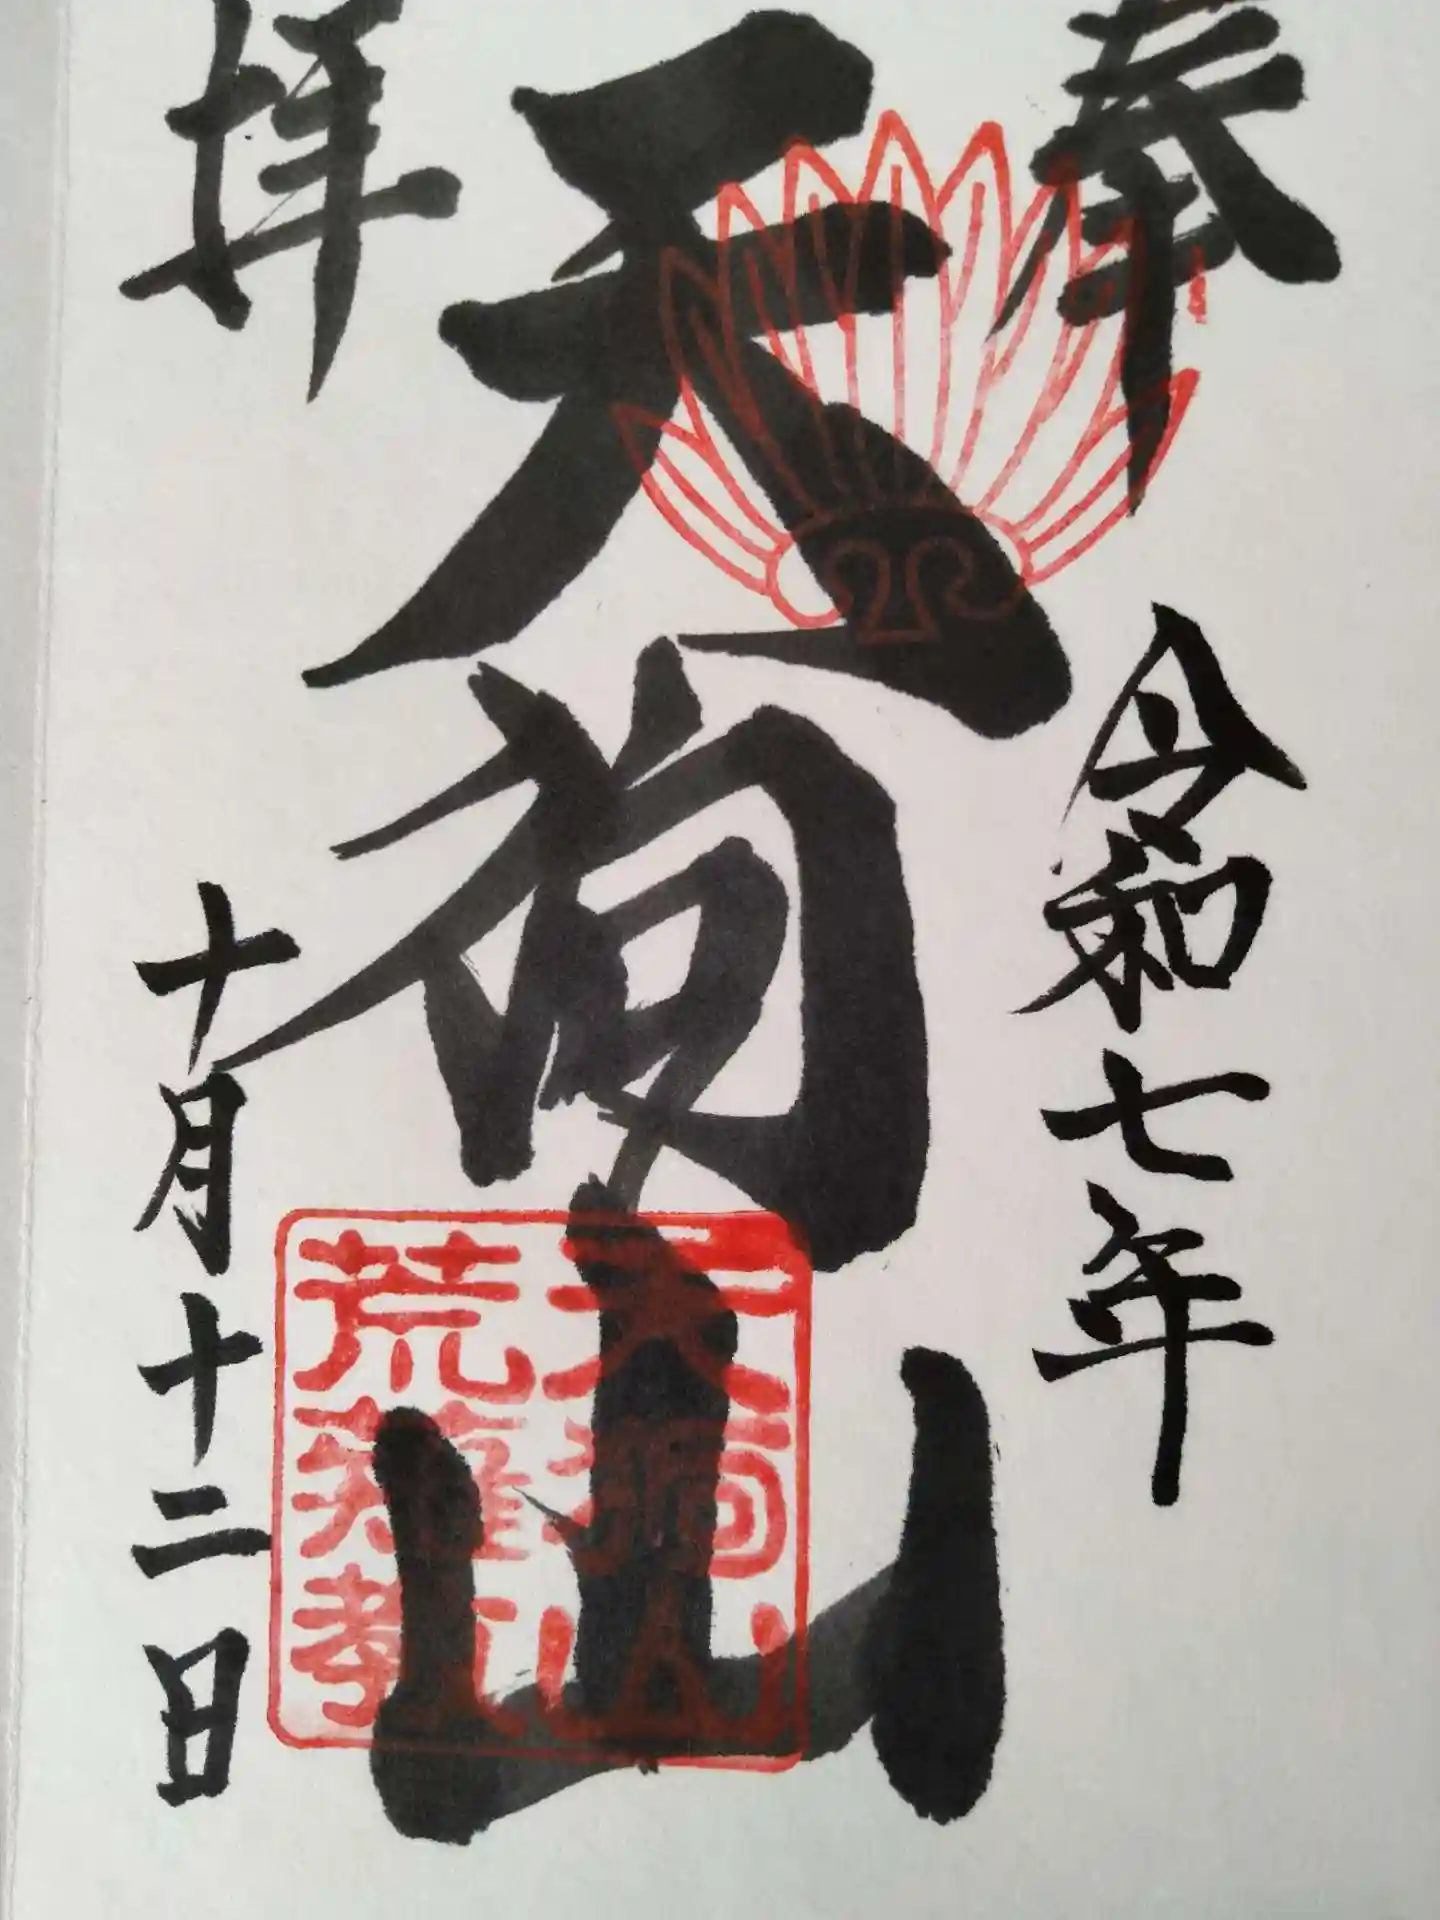 奉
拝
令和七年
天狗山
天狗山
十月十二日